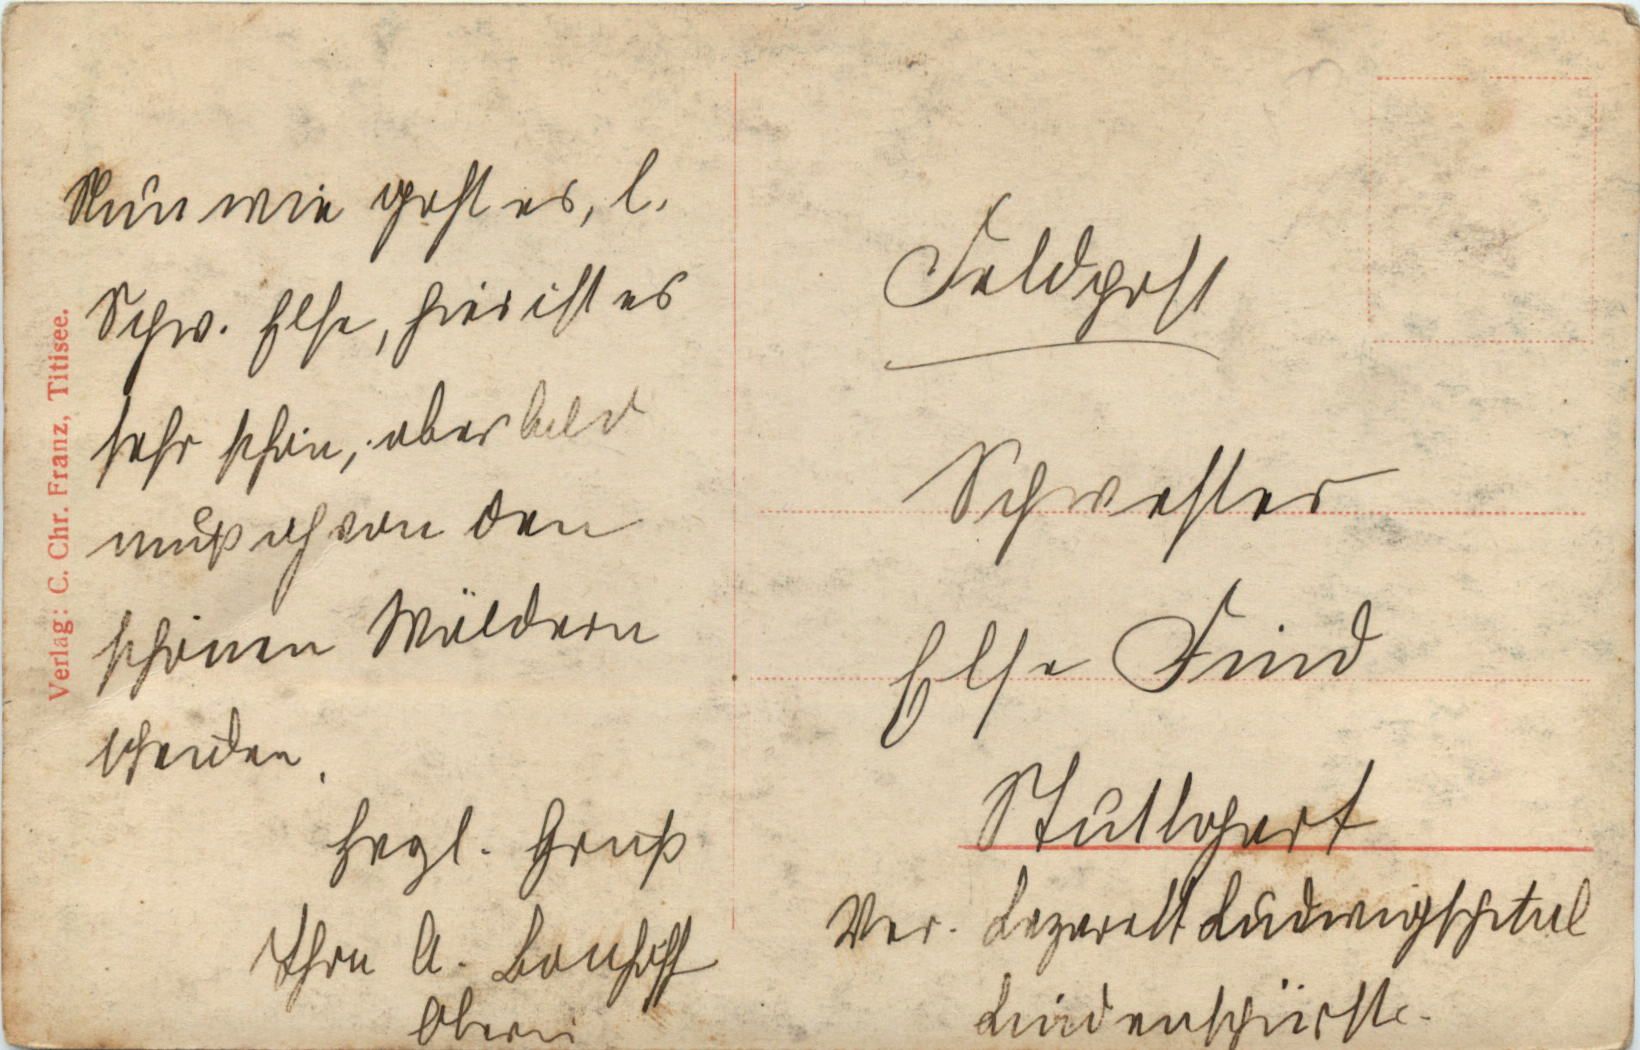 Nun wie geht es, l.
Schw. Else, hier ist es
sehr schön, aber bald
muß ich von den
schönen Wäldern
scheiden.
Herzl. Gruß
Ihre A. Bonhöff
Oberin
Verlag: C. Chr. Franz, Titisee.
Feldpost
Schwester
Else Find
Stuttgart
Ver. Lazarett Ludwigspital
Lindenspürstr.